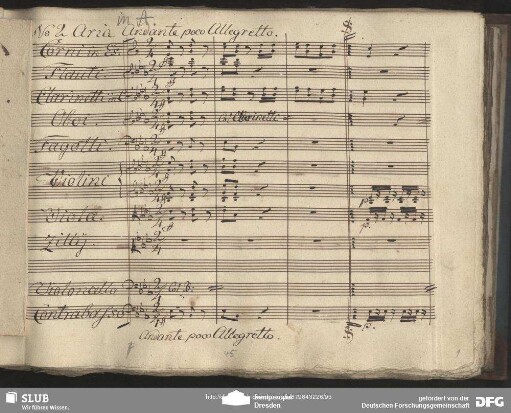 in A.
No 2. Aria Andante poco Allegretto.
Corni in Es.
Flauti.
Clarinetti in
Oboi. Clarinetti
Fagotti.
Violini
Viola.
Lilly.
Violoncello Col B:
Contrabasso
p.
p.
p.
Andante poco Allegretto.
SLUB
Wir führen Wissen.
Dresden
gefördert von der
Deutschen Forschungsgemeinschaft
DFG